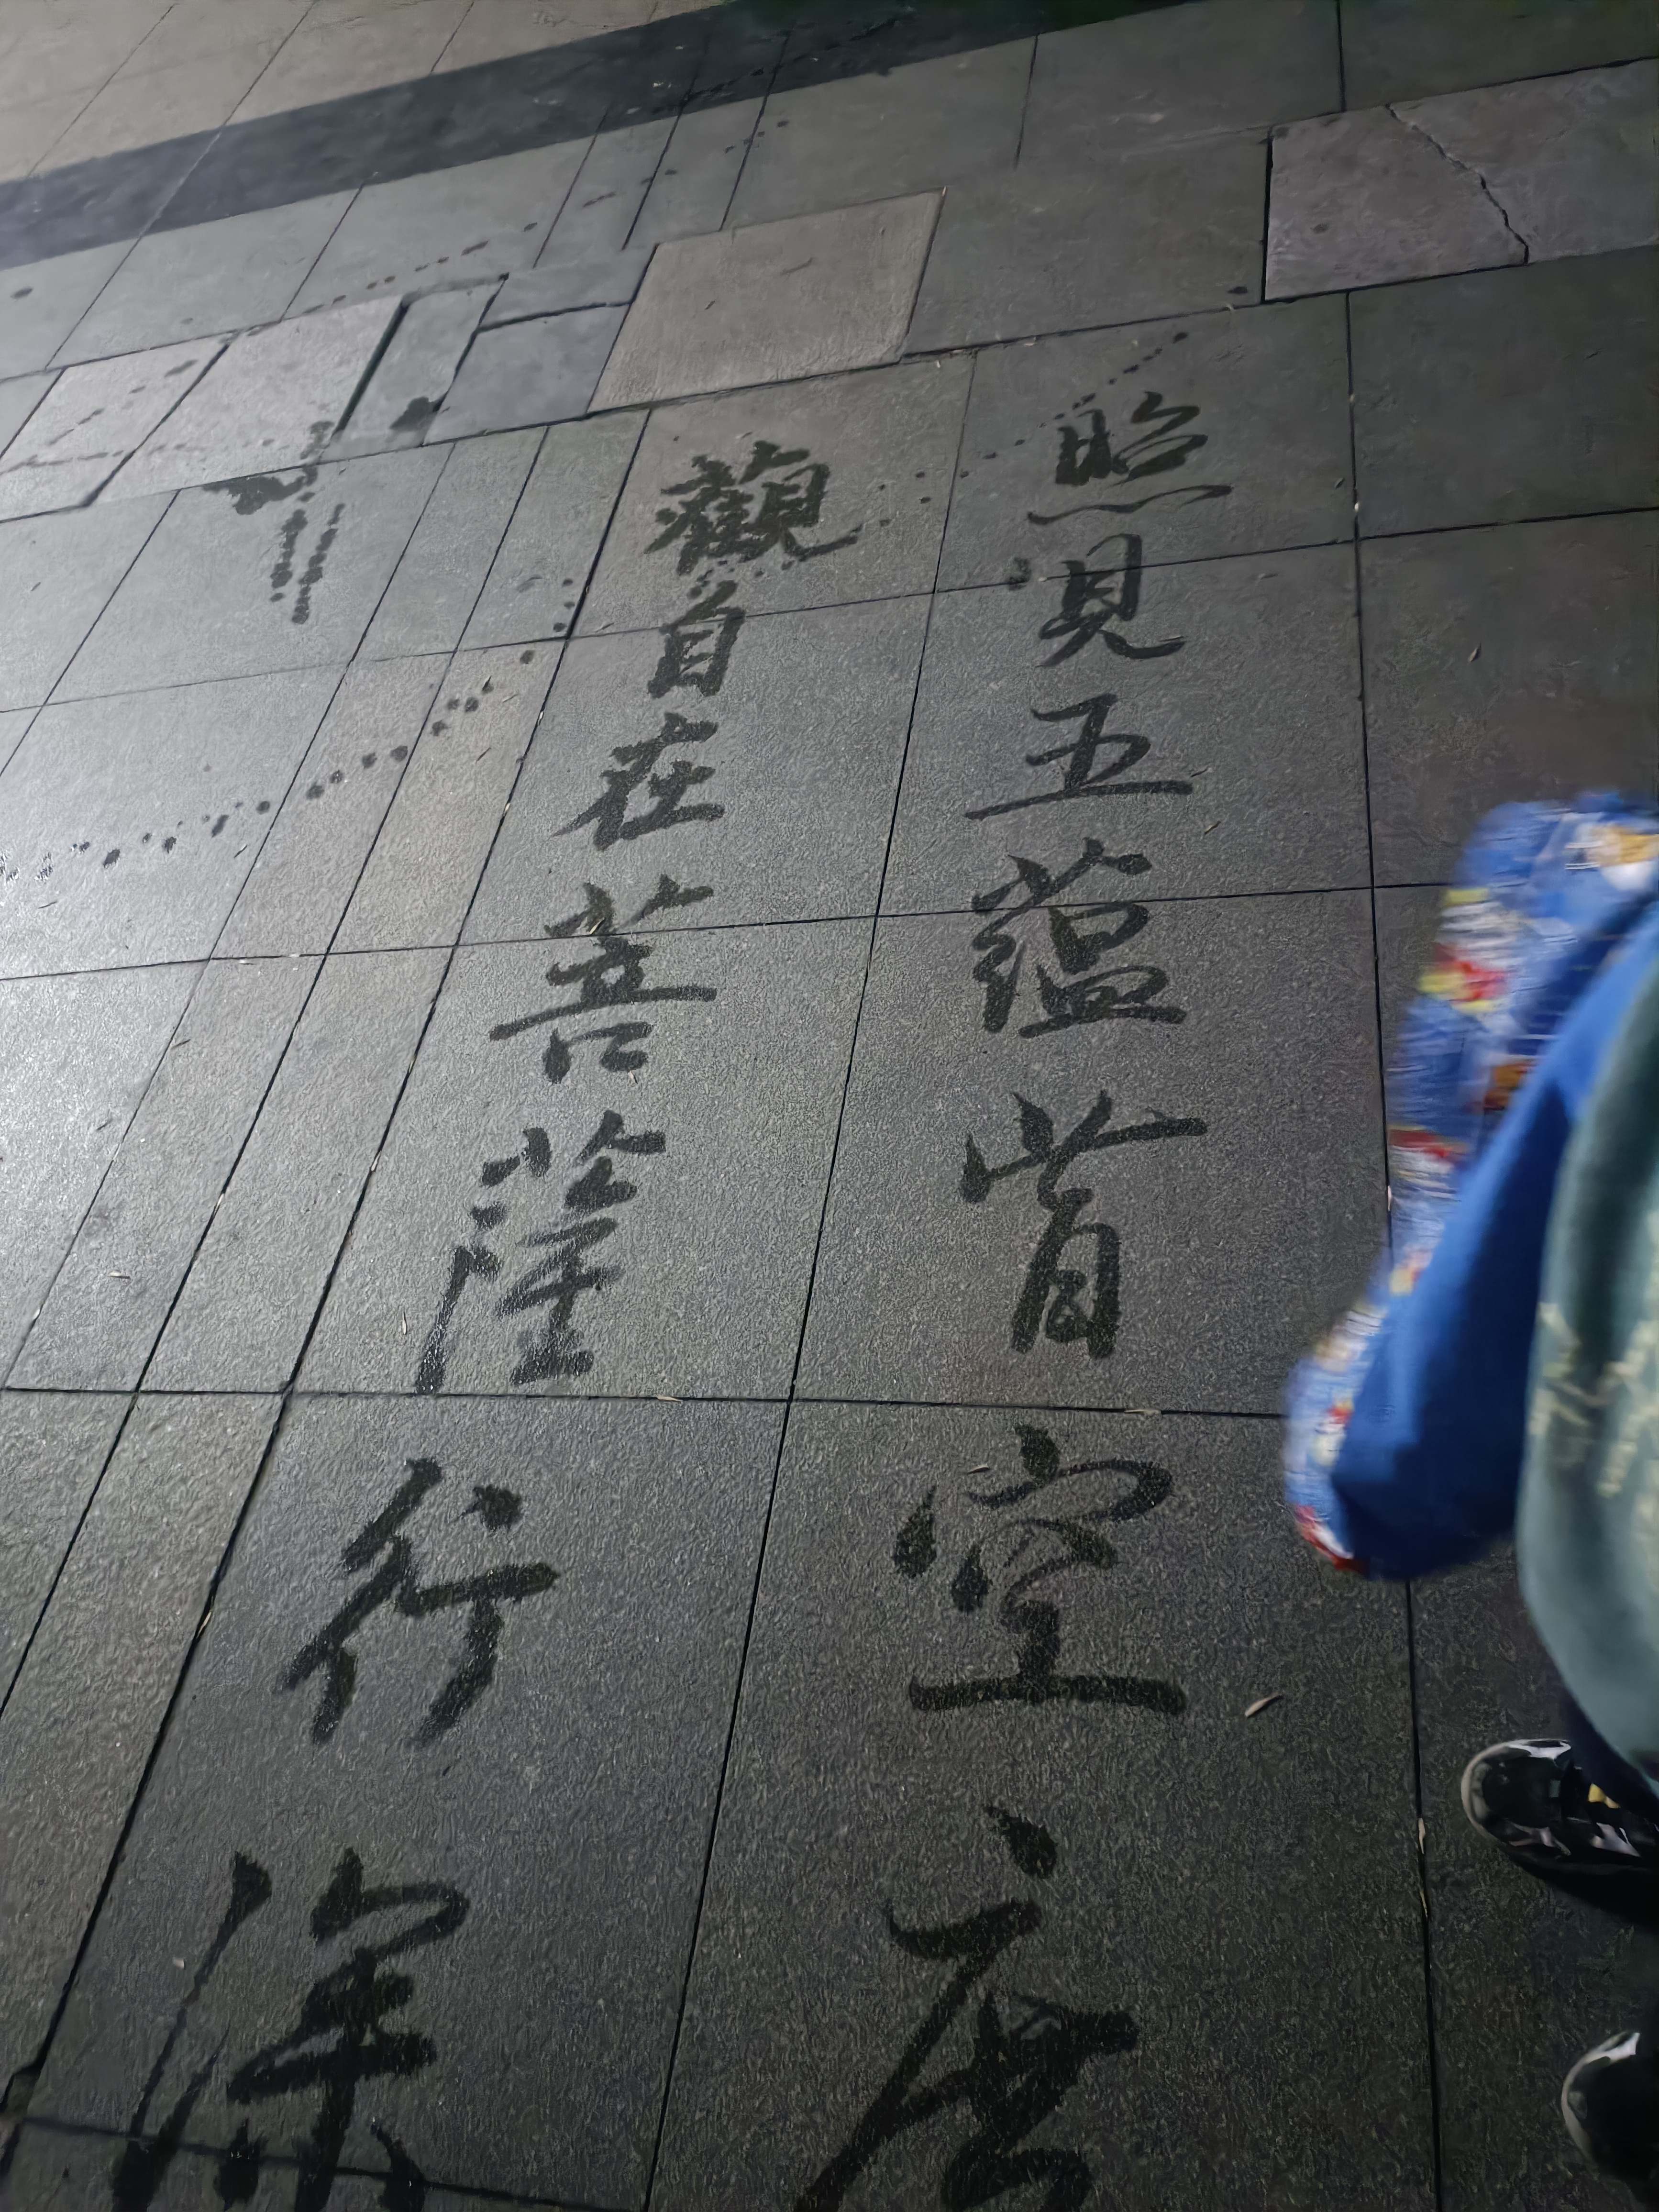 觀自在菩薩行深
照見五蘊皆空度